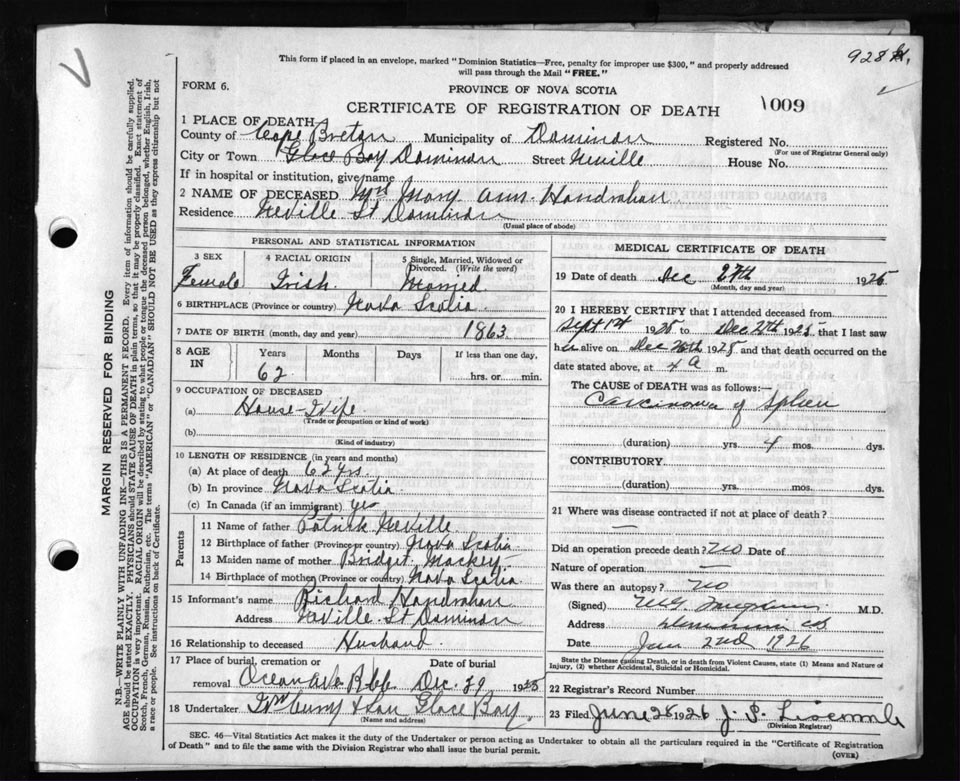 928
V
This form if placed in an envelope, marked "Dominion Statistics—Free, penalty for improper use $300," and properly addressed
will pass through the Mail "FREE."
FORM 6.
PROVINCE OF NOVA SCOTIA
CERTIFICATE OF REGISTRATION OF DEATH
1009
1 PLACE OF DEATH
County of Cape Breton Municipality of Dominion Registered No.
(For use of Registrar General only)
City or Town Glace Bay Dominion Street Neville House No.
If in hospital or institution, give name
2 NAME OF DECEASED Mrs Mary Ann Handrahan
Residence Neville St Dominion
(Usual place of abode)
PERSONAL AND STATISTICAL INFORMATION
3 SEX
Female
4 RACIAL ORIGIN
Irish
5 Single, Married, Widowed or Divorced. (Write the word)
Married
6 BIRTHPLACE (Province or country) Nova Scotia
7 DATE OF BIRTH (month, day and year) 1863
8 AGE IN
Years Months Days If less than one day,
62 hrs. or min.
9 OCCUPATION OF DECEASED
(a) House-Wife
(Trade or occupation or kind of work)
(b)
(Kind of industry)
10 LENGTH OF RESIDENCE (in years and months)
(a) At place of death 62 yrs.
(b) In province Nova Scotia
(c) In Canada (if an immigrant) yes
Parents
11 Name of father Patrick Neville
12 Birthplace of father (Province or country) Nova Scotia
13 Maiden name of mother Bridget Mackey
14 Birthplace of mother (Province or country) Nova Scotia
15 Informant's name Richard Handrahan
Address Neville St Dominion
16 Relationship to deceased Husband
17 Place of burial, cremation or Date of burial
removal Dec. 29 1925
18 Undertaker & Son Glace Bay
(Name and address)
MEDICAL CERTIFICATE OF DEATH
19 Date of death Dec 27th 1925
(Month, day and year)
20 I HEREBY CERTIFY that I attended deceased from
Sept 1st 1925 to Dec 27th 1925 that I last saw
her alive on Dec 26th 1925 and that death occurred on
date stated above, at 4 a m.
The CAUSE of DEATH was as follows:—
Carcinoma of Spleen
(duration) yrs. 4 mos. dys.
CONTRIBUTORY
(duration) yrs. mos. dys.
21 Where was disease contracted if not at place of death?
—
Did an operation precede death? No Date of
Nature of operation —
Was there an autopsy? No
(Signed) M.D.
Address
Date Jan 22nd 1926
State the Disease causing Death, or in death from Violent Causes, state (1) Means and Nature of
Injury, (2) whether Accidental, Suicidal or Homicidal.
22 Registrar's Record Number
23 Filed June 28 1926 J. P. Liscomb
(Division Registrar)
SEC. 46—Vital Statistics Act makes it the duty of the Undertaker or person acting as Undertaker to obtain all the particulars required in the "Certificate of Registration
of Death" and to file the same with the Division Registrar who shall issue the burial permit.
(OVER)
MARGIN RESERVED FOR BINDING
N.B.—WRITE PLAINLY WITH UNFADING INK—THIS IS A PERMANENT RECORD. Every item of information should be carefully supplied.
AGE should be stated EXACTLY. PHYSICIANS should STATE CAUSE OF DEATH in plain terms, so that it may be properly classified. Exact statement of
OCCUPATION is very important. RACIAL ORIGIN will be described by stating to what people or tongue the deceased person belonged, whether English, Irish,
Scotch, French, German, Russian, Ruthenian, etc. The terms "AMERICAN" or "CANADIAN" SHOULD NOT BE USED as they express citizenship but not
a race or people. See instructions on back of Certificate.